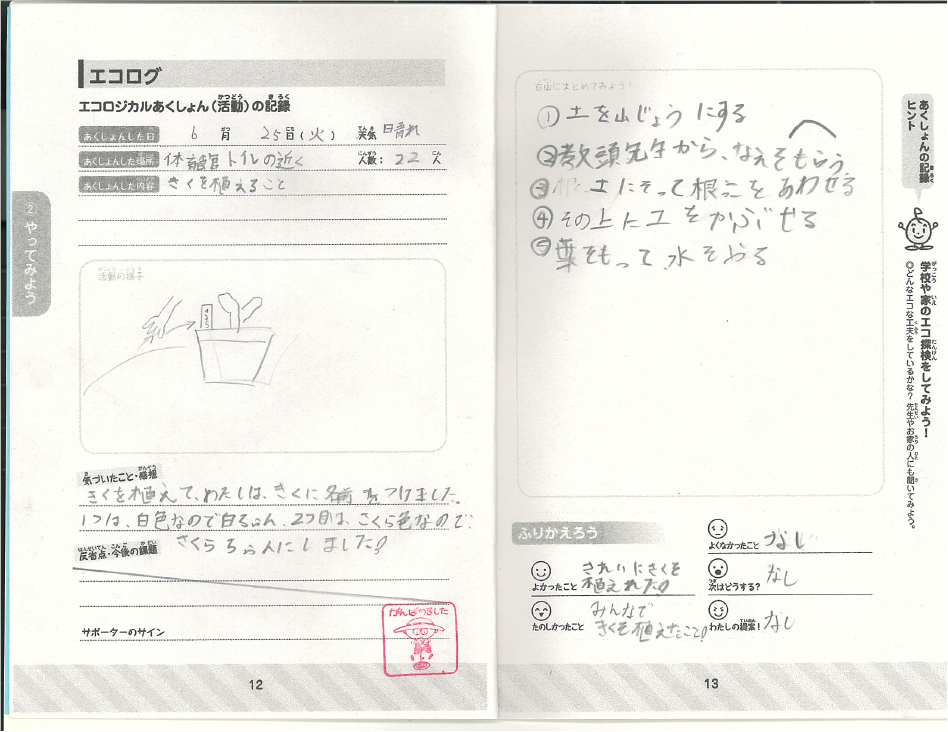 エコログ
エコロジカルあくしょん(活動)の記録
あくしょんした日 6月 25日(火) 天気 日晴れ
あくしょんした場所 体育館トイレの近く 人数: 22 人
あくしょんした内容 きくを植えること
② やってみよう
活動の様子
気づいたこと・感想
きくを植えて、わたしは、きくに名前をつけました。
1つは、白色なので白ちゃん、2つ目は、さくら色なので、
反省点・今後の課題 さくらちゃんにしました!
サポーターのサイン
がんばりました
12
自由にまとめてみよう!
①土を山じょうにする
②教頭先生から、なえをもらう
③土にそって根っこをあわせる
④その上に土をかぶせる
⑤葉をもって水をやる
ふりかえろう
よかったこと きれいにきくを
植えれた!
たのしかったこと みんなで
きくを植えたこと!
よくなかったこと なし
次はどうする? なし
わたしの提案! なし
13
あくしょんの記録
ヒント
学校や家のエコ探検をしてみよう!
◎どんなエコな工夫をしているかな? 先生やお家の人にも聞いてみよう。